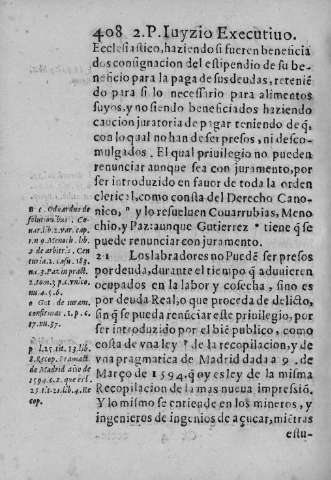 408 2.P. Iuyzio Executiuo.
Ecclesiastico, haziendo si fueren beneficia
dos consignacion del estipendio de su be-
neficio para la paga de sus deudas, reteniē
do para si lo necessario para alimentos
suyos, y no siendo beneficiados haziendo
caucion juratoria de pagar teniendo de q̃,
con lo qual no han de ser presos, ni desco-
mulgados. El qual priuilegio no pueden
renunciar aunque sea con juramento, por
ser introduzido en fauor de toda la orden
clerical, como consta del Derecho Cano-
nico, n y lo resueluen Couarrubias, Meno
chio, y Paz: aunque Gutierrez o tiene q̃ se
puede renunciar con juramento.
21 Los labradores no Puedē ser presos
por deuda, durante el tiempo q̃ aduuieren
ocupados en la labor y cosecha, sino es
por deuda Real, o que proceda de delicto,
sin q̃ se pueda renūciar este priuilegio, por
ser introduzido por el biē publico, como
costa de vna ley p de la recopilacion, y de
vna pragmatica de Madrid dada a 9. de
Março de 1594. q̃ oy es ley de la misma
Recopilacion de la mas nueua impressiō.
Y lo mismo se entiende en los mineros, y
ingenieros de ingenios de açucar, miētras
estu-
n c. Odoardus de
solution. bus. Co-
uar. lib. 2. var. cap.
1. n. 9. Menoch. lib.
2. de arbitris. Cen
turia. 2. casu. 183.
nu. 3. Paz in pract.
2. tom. 3. p. c. vnico.
nu. 4. 5. 6.
o Gut. de iuram.
confirmat. 1. p. c.
17. nu. 37.
p l. 25. tit. 21. lib.
8. Recop. Pramatt.
de Madrid año de
1594. c. 2. que es l.
25. ti. 21. lib. 4. Re
cop.